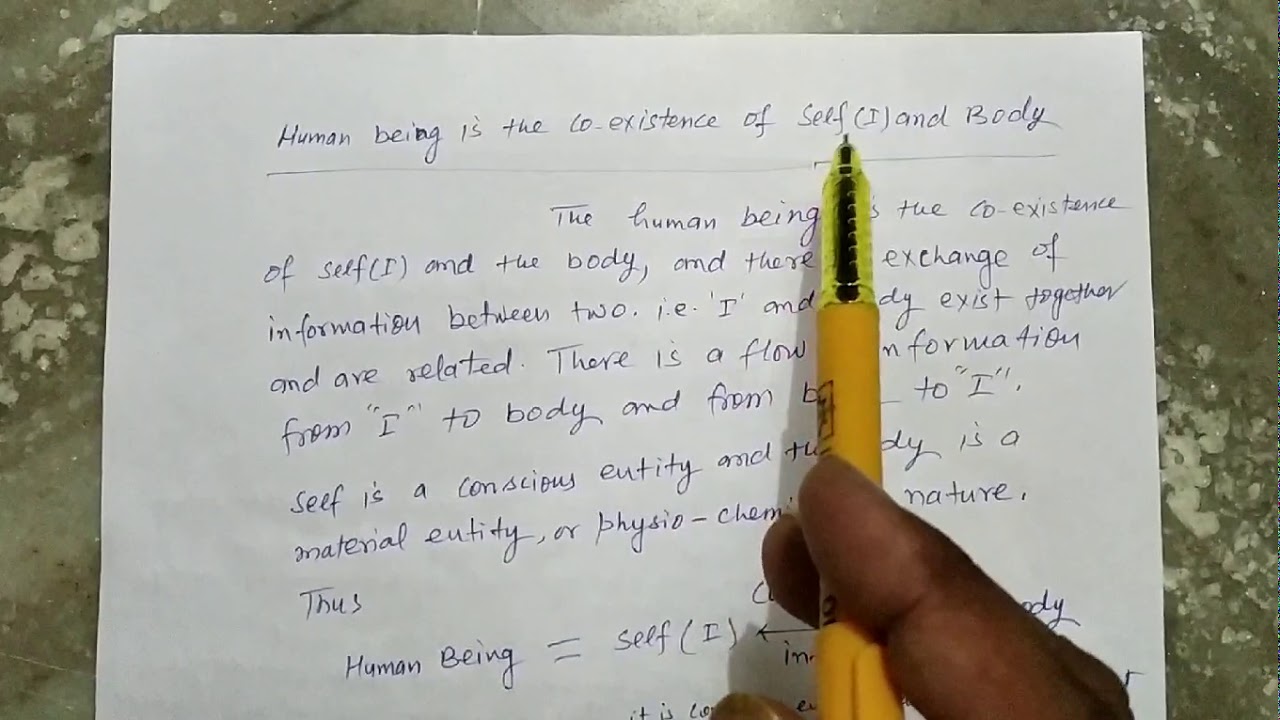 Human being is the co-existence of Self(I) and Body
The human being is the co-existence
of self(I) and the body, and there exchange of
information between two. i.e. 'I' and body exist together
and are related. There is a flow information
from "I" to body and from to "I".
self is a conscious entity and the body is a
material entity, or physio-chemical nature.
Thus
Human Being = self (I) ← body
it is